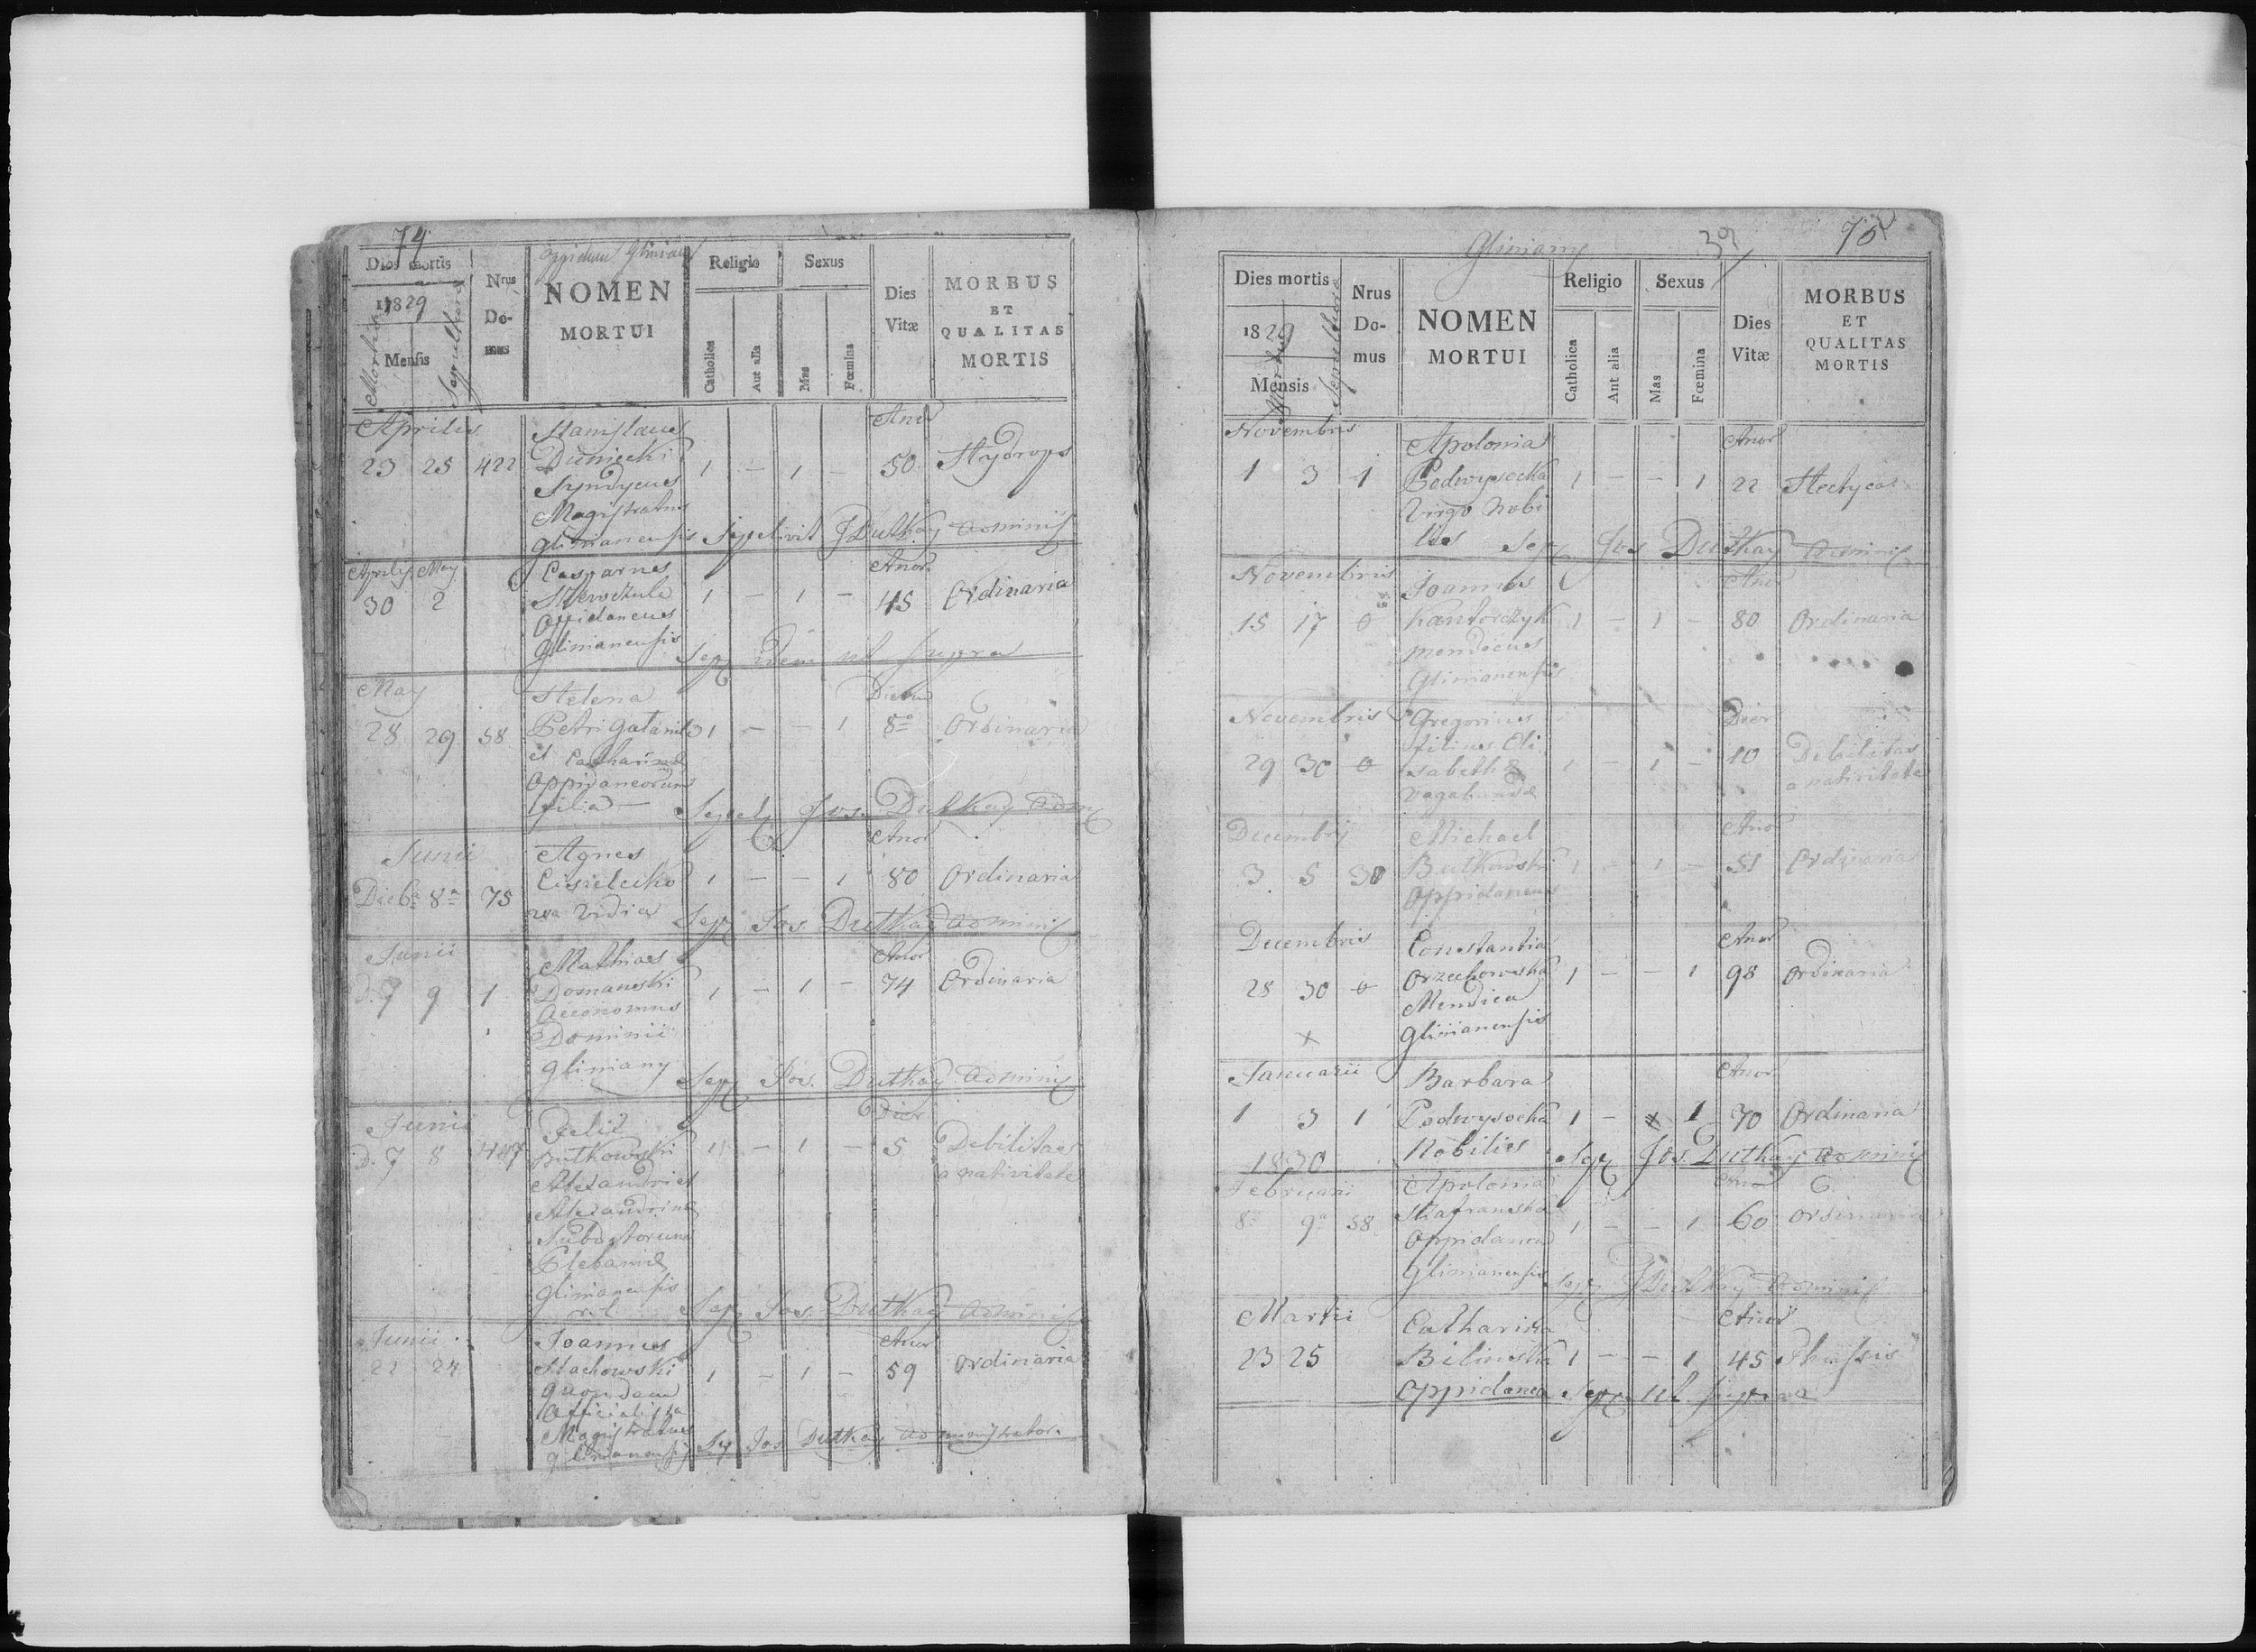 74
oppidum Gliniany
Dies mortis
Nrus
Do-
mus
NOMEN
MORTUI
Religio
Sexus
Dies
Vitæ
MORBUS
ET
QUALITAS
MORTIS
1829
Mensis
Mortis
Sepulturae
Catholica
Aut alia
Mas
Fœmina
Aprilis
Stanislaus
Anor
23 25 422 Duniecki 1 – 1 – 50 Hydrops
Syndycus
Magistratus
Glinianensis Sepelivit J Dutkay Adminis
Aprilis May Casparus Anor
30 2 1 – 1 – 45 Ordinaria
Oppidaneus
Glinianensis
Sep idem ut supra
May Helena Dierum
28 29 58 Petri 1 – – 1 8º Ordinaria
et Catharinae
Oppidaneorum
filia – Sepel Jos. Dutkay Adm
Junii Agnes Anor
Die 6ª 8ª 75 1 – – 1 80 Ordinaria
wa Vidua
Sep Jos. Dutkay Adminis
Junii Mathias Anor
D. 7 9 1 Domanski 1 – 1 – 74 Ordinaria
Aeconomus
Dominii
Gliniany Sep Jos. Dutkay Adminis
Junii Felix Dier
D. 7 8 Rutkowski 1 – 1 – 5 Debilitas
Alexandri et a nativitate
Alexandrina
Subditorum
Plebaniae
Glinianensis
r.l. Sep Jos. Dutkay Adminis
Junii Joannes Anor
22 24 Stachowski 1 – 1 – 59 Ordinaria
quondam
Officialista
Magistratus
Glinianensis Sep Jos Dutkay Administrator
Gliniany
39
75
Dies mortis
Nrus
Do-
mus
NOMEN
MORTUI
Religio
Sexus
Dies
Vitæ
MORBUS
ET
QUALITAS
MORTIS
1829
Mensis
Mortis
Sepulturae
Catholica
Ant alia
Mas
Fœmina
Novembris Apolonia Anor
1 3 1 Podwysocka 1 – – 1 22 Hectyca
Virgo Nobi
lis Sep Jos Dutkay Adminis
Novembris Joannes Anor
15 17 0 Kantorczyk 1 – 1 – 80 Ordinaria
mendicus
Glinianensis
Novembris Gregorius Dier
29 30 0 filius Eli 1 – 1 – 10 Debilitas
sabethae a nativitate
vagabundae
Decembris Michael Anor
3 5 30 Butkowski 1 – 1 – 51 Ordinaria
Oppidaneus
Decembris Constantia Anor
28 30 0 Orzechowska 1 – – 1 98 Ordinaria
Mendica
x Glinianensis
Januarii Barbara Anor
1 3 1 Podwysocka 1 – x 1 70 Ordinaria
1830 Nobilis Sep Jos. Dutkay Adminis
Februarii Apolonia
8ª 9ª 58 1 – – 1 60 Ordinaria
Oppidanea
Glinianensis Sep J Dutkay Adminis
Martii Catharina Anor
23 25 Bilinska 1 – – 1 45 Phtysis
Oppidanea Sep ut supra